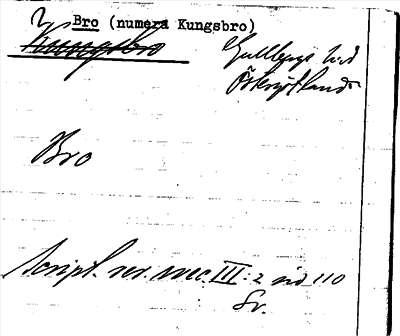 Bro (numera Kungsbro)
Kungsbro
Gullbergs hd
Östergötland
Bro
Script. rer. suec. III:2 sid 110
Sv.